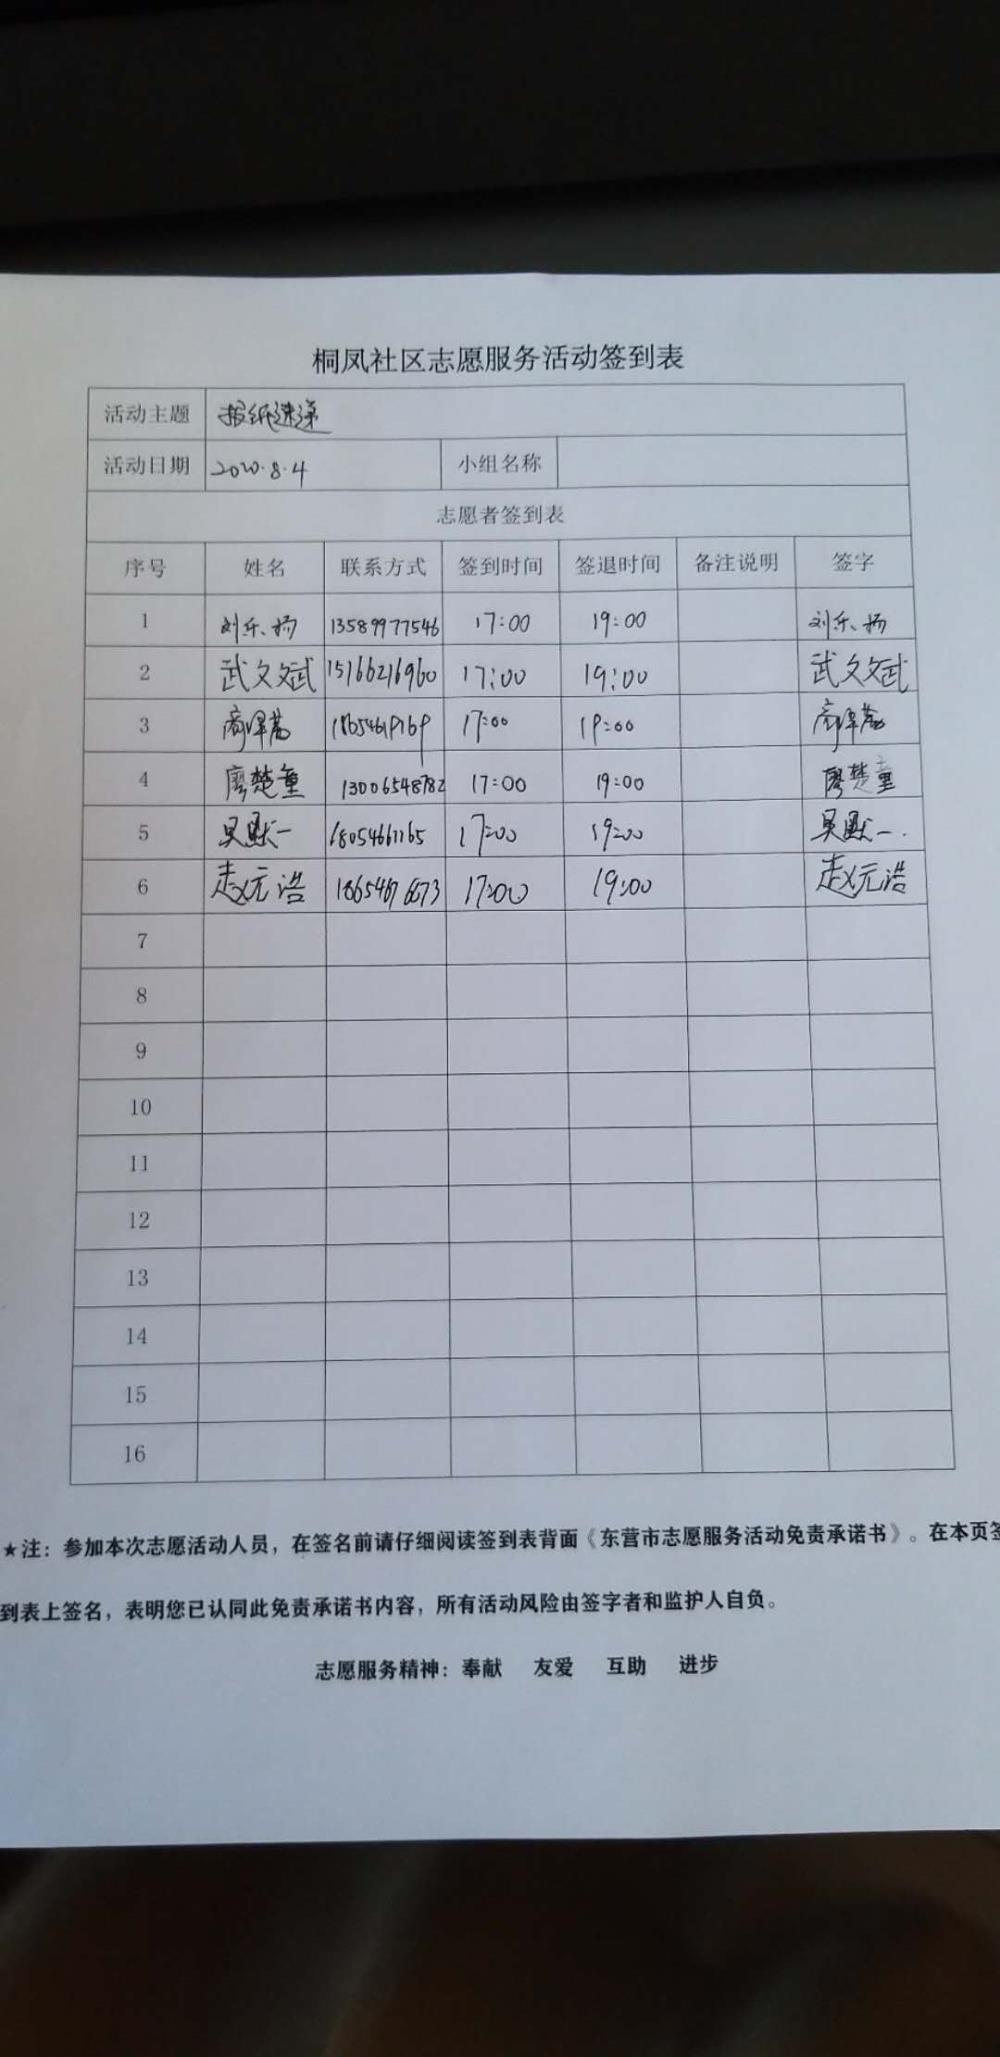 桐凤社区志愿服务活动签到表
活动主题 报纸速递
活动日期 2020.8.4 小组名称
志愿者签到表
序号 姓名 联系方式 签到时间 签退时间 备注说明 签字
1 刘乐扬 13589977546 17:00 19:00 刘乐扬
2 武文斌 15166216960 17:00 19:00 武文斌
3 17:00 19:00
4 廖楚童 13006548782 17:00 19:00 廖楚童
5 吴一 18054661165 17:00 19:00 吴一.
6 赵元浩 17:00 19:00 赵元浩
7
8
9
10
11
12
13
14
15
16
★注：参加本次志愿活动人员，在签名前请仔细阅读签到表背面《东营市志愿服务活动免责承诺书》。在本页签
到表上签名，表明您已认同此免责承诺书内容，所有活动风险由签字者和监护人自负。
志愿服务精神：奉献 友爱 互助 进步